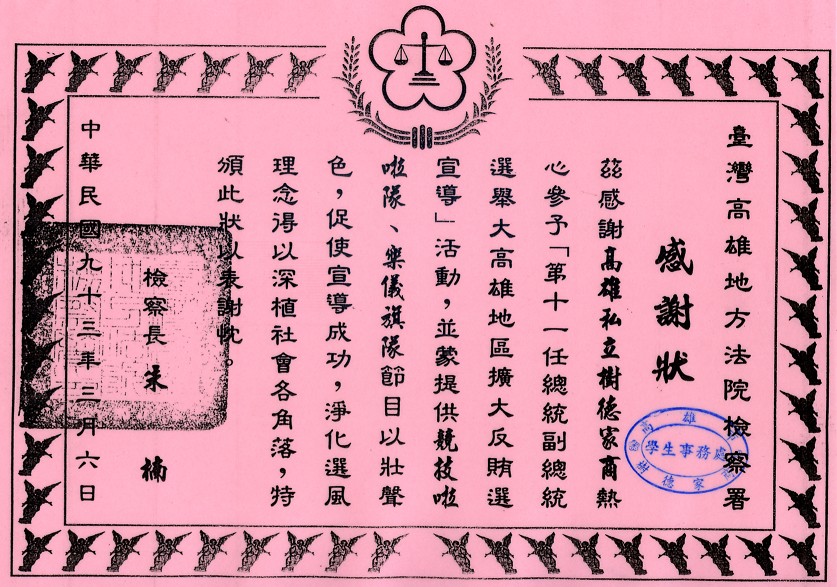 臺灣高雄地方法院檢察署
感謝狀
茲感謝高雄私立樹德家商熱
心參予「第十一任總統副總統
選舉大高雄地區擴大反賄選
宣導」活動，並蒙提供競技啦
啦隊、樂儀旗隊節目以壯聲
色，促使宣導成功，淨化選風
理念得以深植社會各角落，特
頒此狀以表謝忱。
檢察長 朱楠
中華民國九十三年三月六日
學生事務處